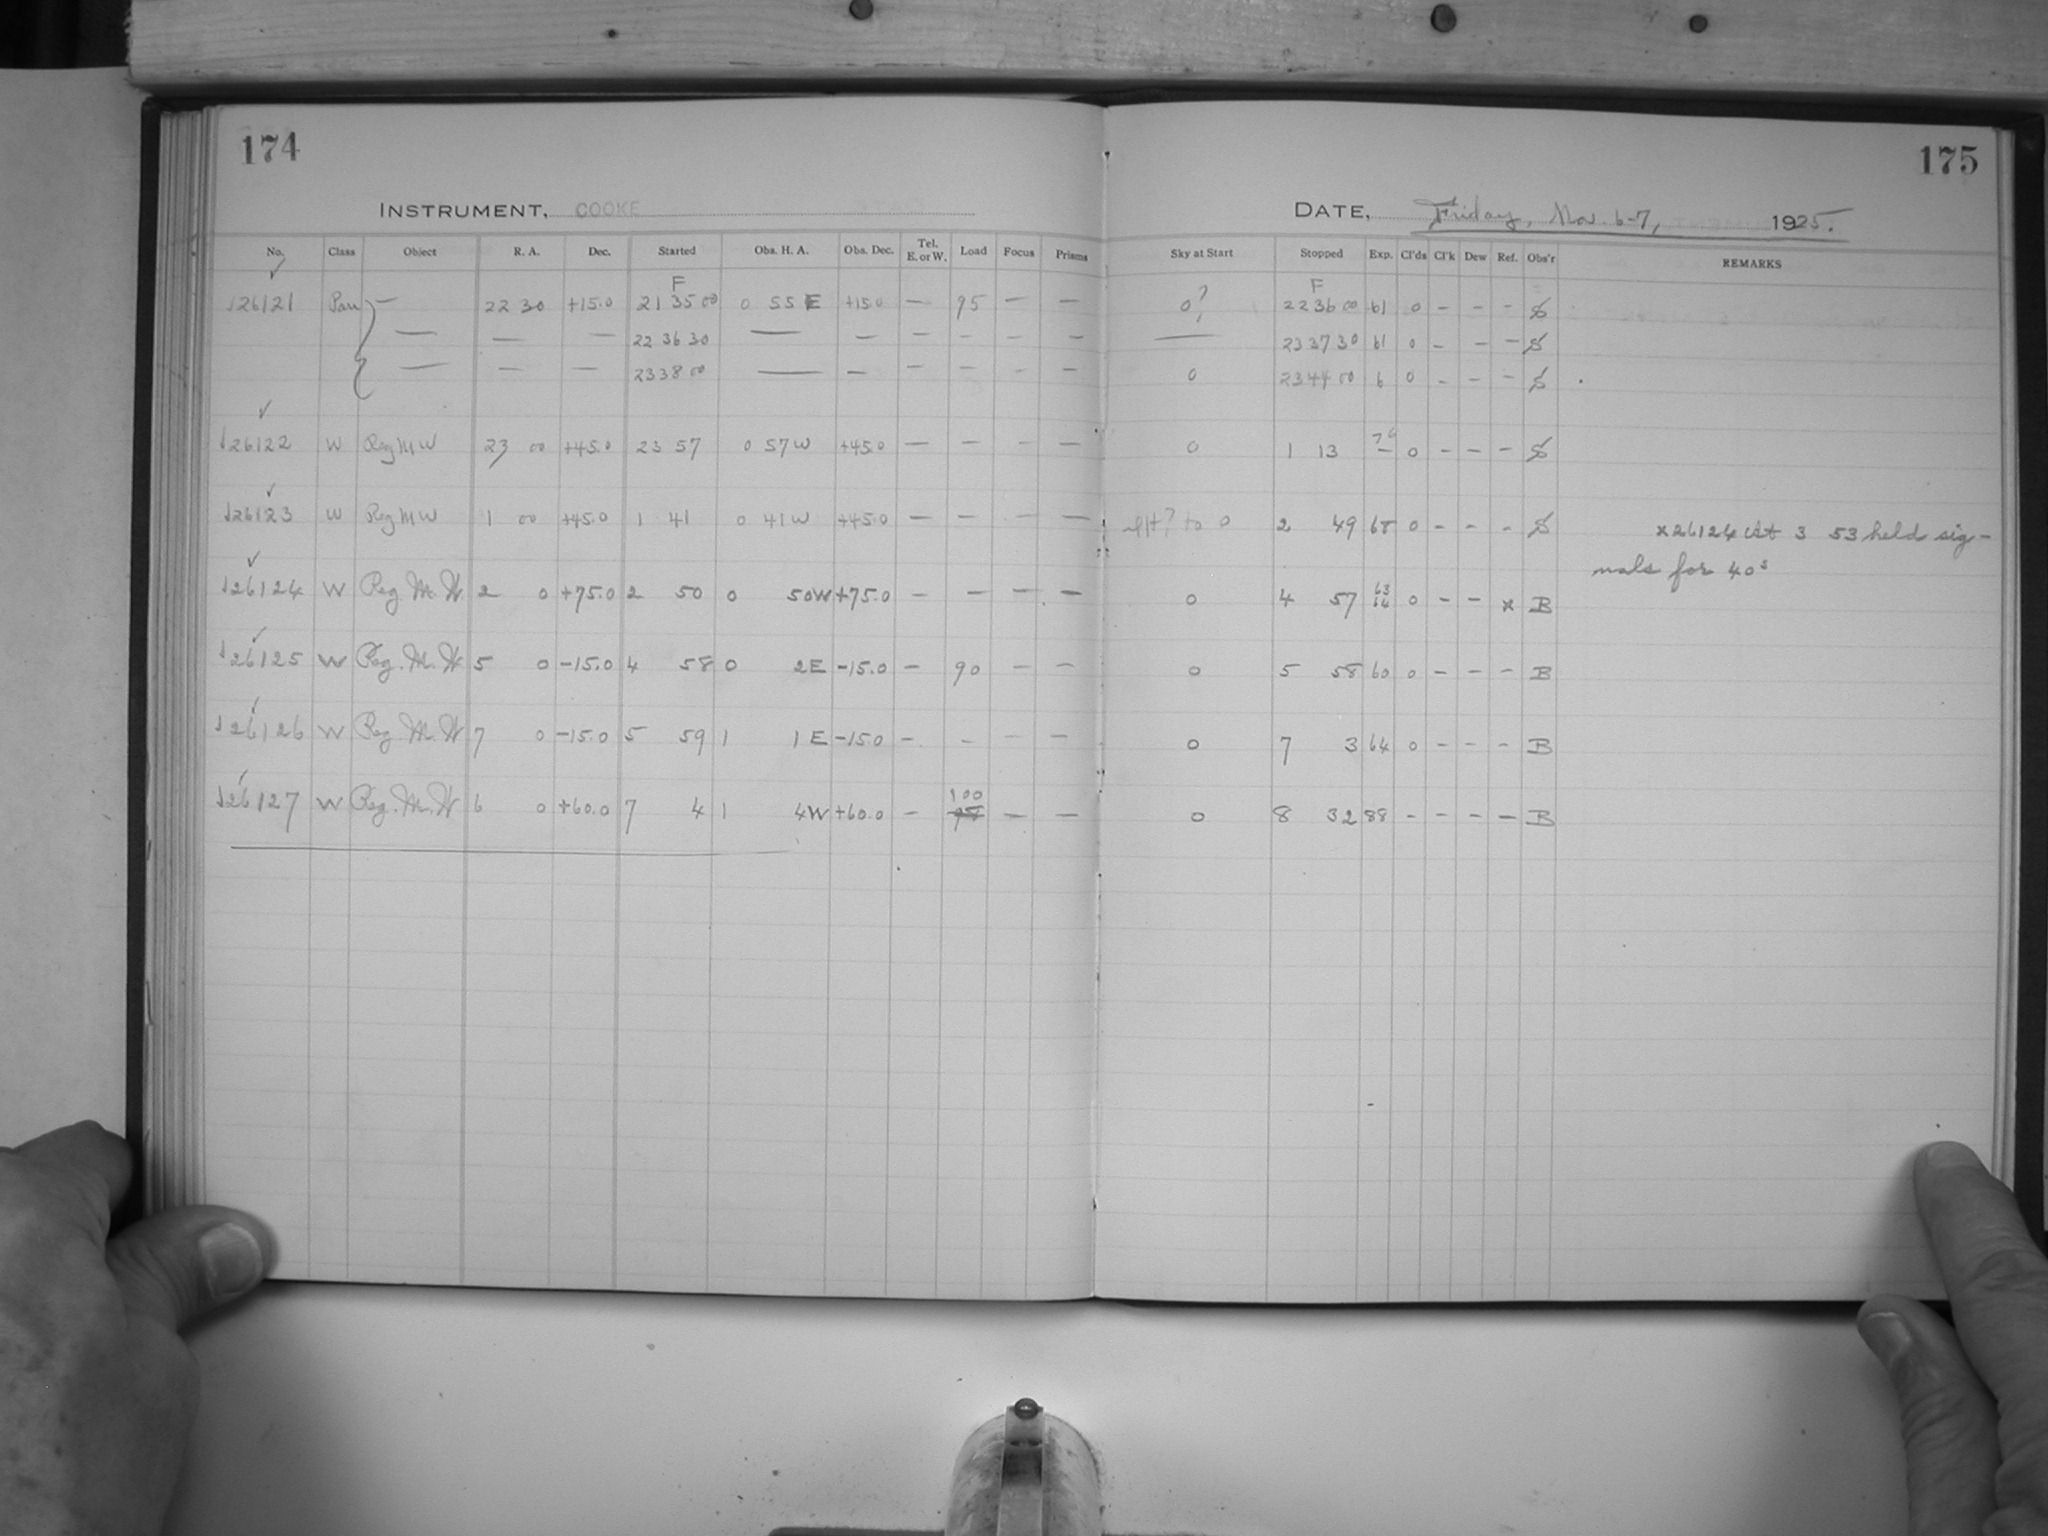 174
175
INSTRUMENT, COOKE
DATE, Friday, Nov. 6-7, 1925.
No. Class Object R. A. Dec. Started Obs. H. A. Obs. Dec. Tel. E. or W. Load Focus Prisms Sky at Start Stopped Exp. Cl'ds Cl'k Dew Ref. Obs'r REMARKS
F F
26121 — 22 30 +15.0 21 35 00 0 55 E +15.0 — 95 — — 0? 22 36 00 61 0 - - - S
— — — 22 36 30 — — — — — — — 23 37 30 61 0 - - - S
— — — 23 38 00 — — — — — — 0 23 44 00 6 0 - - - S
26122 W Reg M W 23 00 +45.0 23 57 0 57 W +45.0 — — — — 0 1 13 76 0 - - - S
26123 W Reg M W 1 00 +45.0 1 41 0 41 W +45.0 — — — — to 0 2 49 68 0 - - - S
x26124 At 3 53 held sig-
nals for 40s
26124 W Reg. M. W. 2 0 +75.0 2 50 0 50 W +75.0 — — — — 0 4 57 63 64 0 - - x B
26125 W Reg. M. W 5 0 -15.0 4 58 0 2 E -15.0 — 90 — — 0 5 58 60 0 - - - B
26126 W Reg M. W 7 0 -15.0 5 59 1 1 E -15.0 — — — — 0 7 3 64 0 - - - B
26127 W Reg. M. W 6 0 +60.0 7 4 1 4 W +60.0 — 100 — — 0 8 32 88 - - - - B